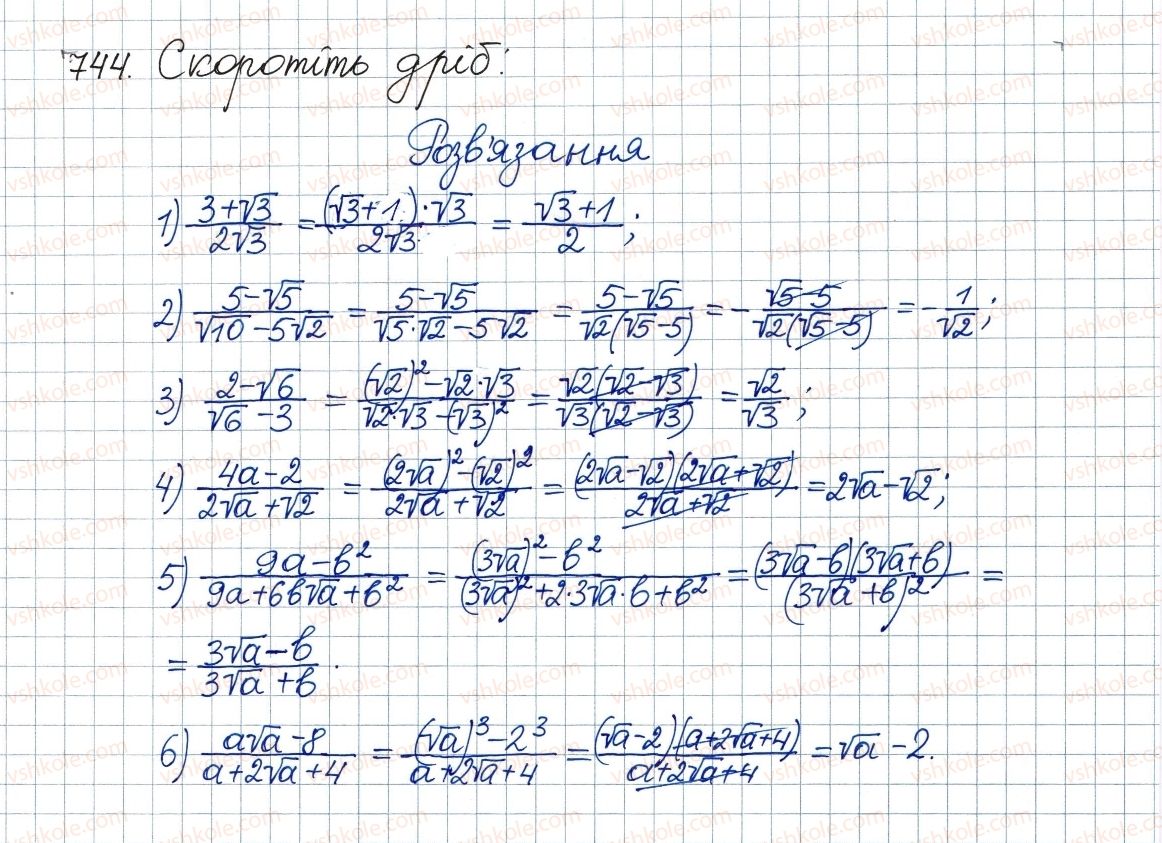 744. Скоротіть дріб:
Розв'язання
1) (3+√3)/(2√3) = ((√3+1)·√3)/(2√3) = (√3+1)/2;
2) (5-√5)/(√10-5√2) = (5-√5)/(√5·√2-5√2) = (5-√5)/(√2(√5-5)) = -(√5-5)/(√2(√5-5)) = -1/√2;
3) (2-√6)/(√6-3) = ((√2)²-√2·√3)/(√2·√3-(√3)²) = (√2(√2-√3))/(√3(√2-√3)) = √2/√3;
4) (4a-2)/(2√a+√2) = ((2√a)²-(√2)²)/(2√a+√2) = ((2√a-√2)(2√a+√2))/(2√a+√2) = 2√a-√2;
5) (9a-b²)/(9a+6b√a+b²) = ((3√a)²-b²)/((3√a)²+2·3√a·b+b²) = ((3√a-b)(3√a+b))/((3√a+b)²) =
= (3√a-b)/(3√a+b).
6) (a√a-8)/(a+2√a+4) = ((√a)³-2³)/(a+2√a+4) = ((√a-2)(a+2√a+4))/(a+2√a+4) = √a-2.
vshkole.com